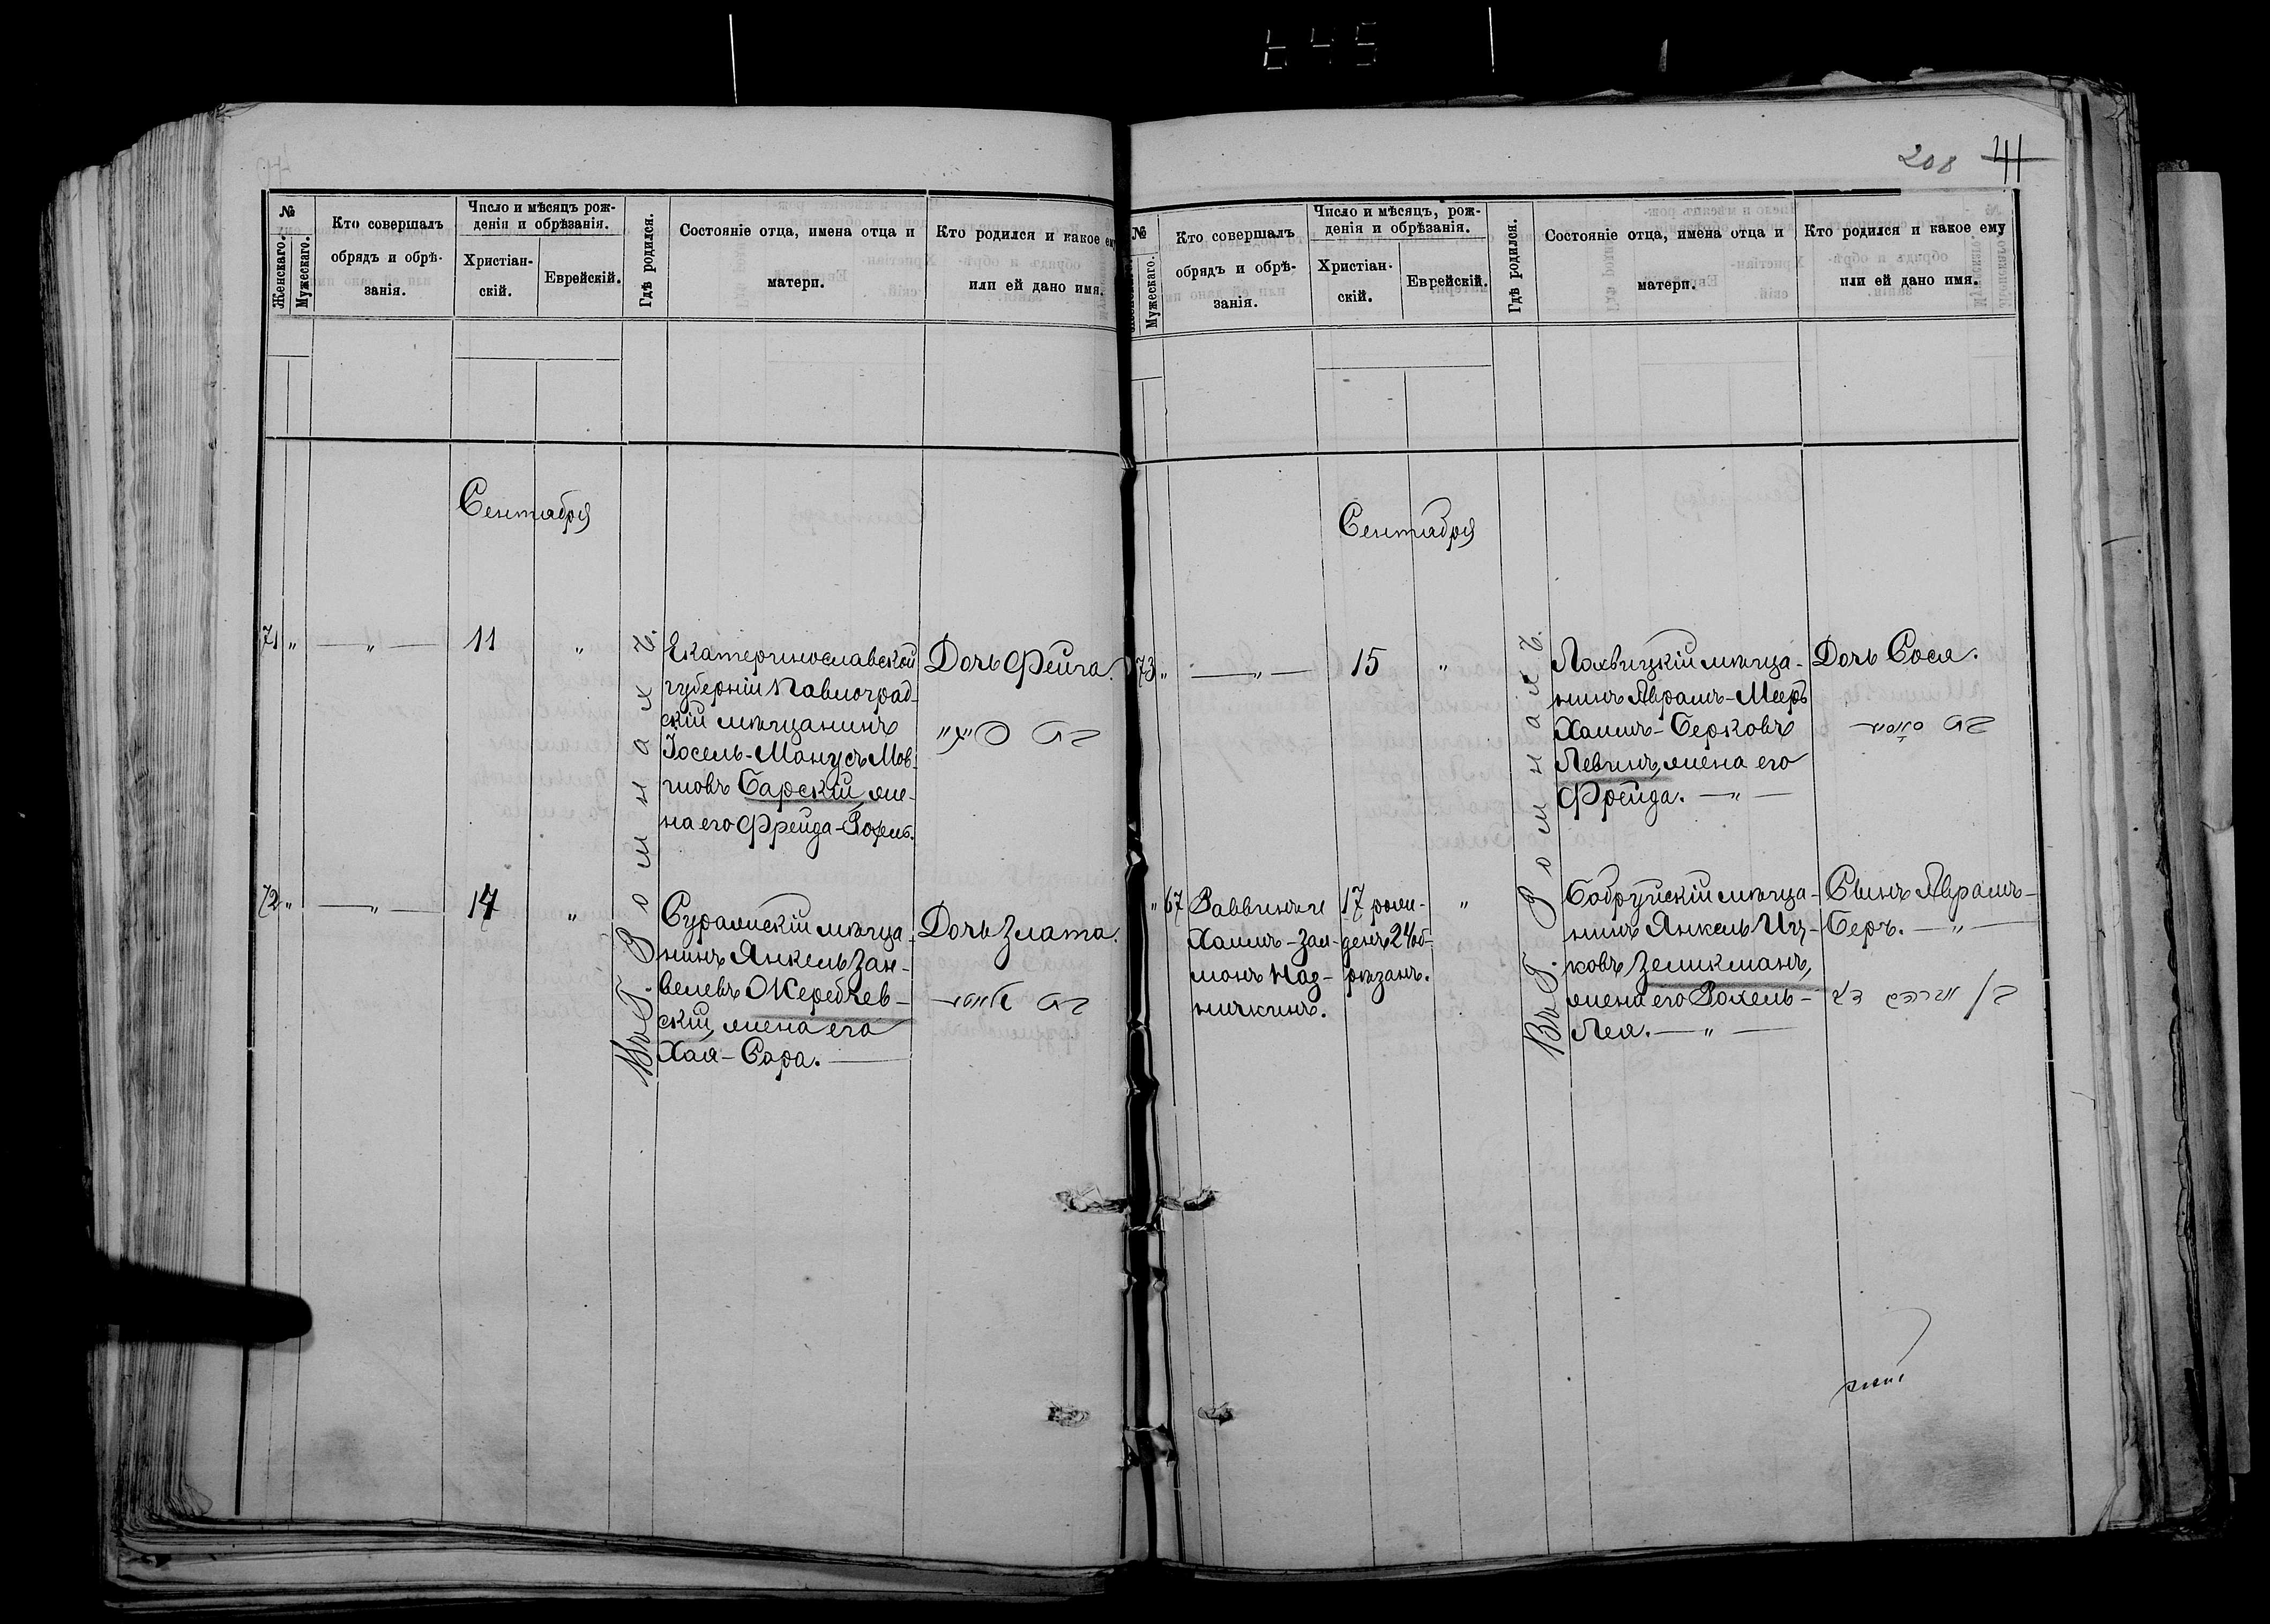 645
208 41
№
Женскаго.
Мужескаго.
Кто совершалъ
обрядъ и обрѣ-
занія.
Число и мѣсяцъ рож-
денія и обрѣзанія.
Христіан-
скій.
Еврейскій.
Гдѣ родился.
Состояніе отца, имена отца и
матери.
Кто родился и какое ему
или ей дано имя.
Сентября
71 " — " — 11 "
Въ Г. Ромнахъ.
Екатеринославской
губерніи Павлоград-
скій мѣщанинъ
Іосель-Манусъ Мов-
шовъ Барскій, же-
на его Фрейда-Рохель.
Дочь Фейга.
בת
72 " — " — 14 "
Суражскій мѣща-
нинъ Янкель Зан-
велевъ Жеребчев-
скій, жена его
Хая-Сара. —
Дочь Злата.
בת
№
Женскаго.
Мужескаго.
Кто совершалъ
обрядъ и обрѣ-
занія.
Число и мѣсяцъ, рож-
денія и обрѣзанія.
Христіан-
скій.
Еврейскій.
Гдѣ родился.
Состояніе отца, имена отца и
матери.
Кто родился и какое ему
или ей дано имя.
Сентября
73 " — " — 15 "
Въ Г. Ромнахъ.
Лохвицкій мѣща-
нинъ Аврамъ-Мееръ
Хаимъ-Берковъ
Левинъ, жена его
Фрейда. — " —
Дочь Сося.
בת סאסיא
" 67
Раввинъ и
Хаимъ-Зал-
монъ Наз-
ничкинъ.
17 рож-
денъ 24 об-
рѣзанъ.
"
Бобруйскій мѣща-
нинъ Янкель Иц-
ковъ Зеликманъ,
жена его Рохель-
Лея. — " —
Сынъ Аврамъ-
Беръ. — " —
ב/ אברהם דב